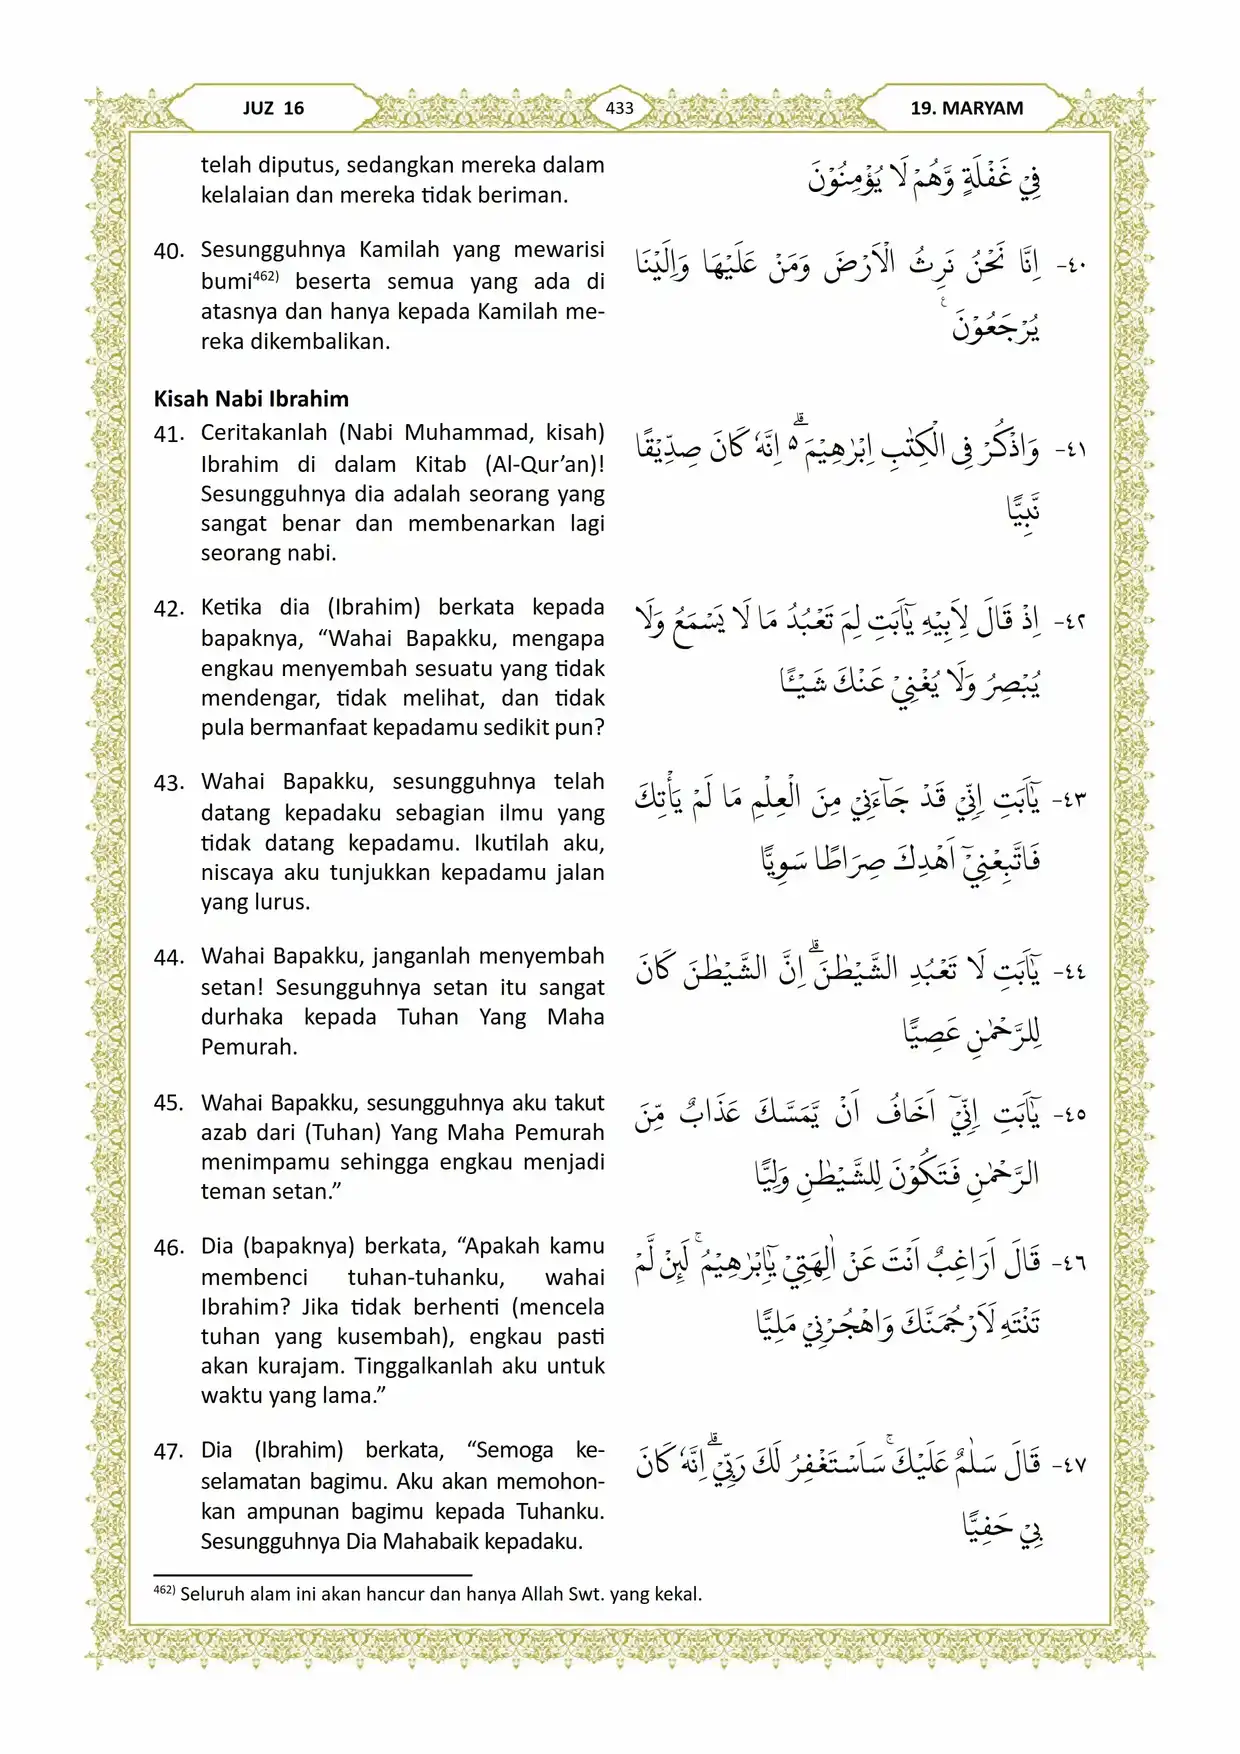 JUZ 16
433
19. MARYAM
telah diputus, sedangkan mereka dalam
kelalaian dan mereka tidak beriman.
فِيْ غَفْلَةٍ وَّهُمْ لَا يُؤْمِنُوْنَ
40. Sesungguhnya Kamilah yang mewarisi
bumi⁴⁶²⁾ beserta semua yang ada di
atasnya dan hanya kepada Kamilah me-
reka dikembalikan.
٤٠- اِنَّا نَحْنُ نَرِثُ الْاَرْضَ وَمَنْ عَلَيْهَا وَاِلَيْنَا
يُرْجَعُوْنَ ࣖ
Kisah Nabi Ibrahim
41. Ceritakanlah (Nabi Muhammad, kisah)
Ibrahim di dalam Kitab (Al-Qur’an)!
Sesungguhnya dia adalah seorang yang
sangat benar dan membenarkan lagi
seorang nabi.
٤١- وَاذْكُرْ فِى الْكِتٰبِ اِبْرٰهِيْمَ ەۗ اِنَّهٗ كَانَ صِدِّيْقًا
نَّبِيًّا
42. Ketika dia (Ibrahim) berkata kepada
bapaknya, “Wahai Bapakku, mengapa
engkau menyembah sesuatu yang tidak
mendengar, tidak melihat, dan tidak
pula bermanfaat kepadamu sedikit pun?
٤٢- اِذْ قَالَ لِاَبِيْهِ يٰٓاَبَتِ لِمَ تَعْبُدُ مَا لَا يَسْمَعُ وَلَا
يُبْصِرُ وَلَا يُغْنِيْ عَنْكَ شَيْـًٔا
43. Wahai Bapakku, sesungguhnya telah
datang kepadaku sebagian ilmu yang
tidak datang kepadamu. Ikutilah aku,
niscaya aku tunjukkan kepadamu jalan
yang lurus.
٤٣- يٰٓاَبَتِ اِنِّيْ قَدْ جَاۤءَنِيْ مِنَ الْعِلْمِ مَا لَمْ يَأْتِكَ
فَاتَّبِعْنِيْٓ اَهْدِكَ صِرَاطًا سَوِيًّا
44. Wahai Bapakku, janganlah menyembah
setan! Sesungguhnya setan itu sangat
durhaka kepada Tuhan Yang Maha
Pemurah.
٤٤- يٰٓاَبَتِ لَا تَعْبُدِ الشَّيْطٰنَۗ اِنَّ الشَّيْطٰنَ كَانَ
لِلرَّحْمٰنِ عَصِيًّا
45. Wahai Bapakku, sesungguhnya aku takut
azab dari (Tuhan) Yang Maha Pemurah
menimpamu sehingga engkau menjadi
teman setan.”
٤٥- يٰٓاَبَتِ اِنِّيْٓ اَخَافُ اَنْ يَّمَسَّكَ عَذَابٌ مِّنَ
الرَّحْمٰنِ فَتَكُوْنَ لِلشَّيْطٰنِ وَلِيًّا
46. Dia (bapaknya) berkata, “Apakah kamu
membenci tuhan-tuhanku, wahai
Ibrahim? Jika tidak berhenti (mencela
tuhan yang kusembah), engkau pasti
akan kurajam. Tinggalkanlah aku untuk
waktu yang lama.”
٤٦- قَالَ اَرَاغِبٌ اَنْتَ عَنْ اٰلِهَتِيْ يٰٓاِبْرٰهِيْمُۚ لَىِٕنْ لَّمْ
تَنْتَهِ لَاَرْجُمَنَّكَ وَاهْجُرْنِيْ مَلِيًّا
47. Dia (Ibrahim) berkata, “Semoga ke-
selamatan bagimu. Aku akan memohon-
kan ampunan bagimu kepada Tuhanku.
Sesungguhnya Dia Mahabaik kepadaku.
٤٧- قَالَ سَلٰمٌ عَلَيْكَۚ سَاَسْتَغْفِرُ لَكَ رَبِّيْۗ اِنَّهٗ كَانَ
بِيْ حَفِيًّا
⁴⁶²⁾ Seluruh alam ini akan hancur dan hanya Allah Swt. yang kekal.